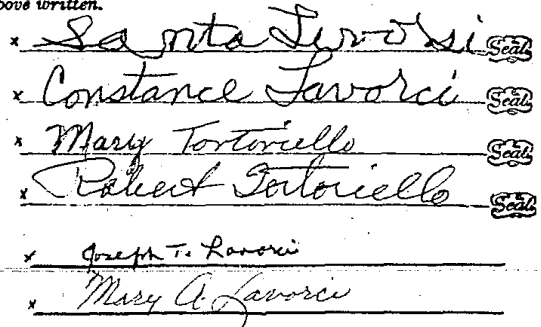 above written.
x Santa Livorsi Seal
x Constance Lavorci Seal
x Mary Tortoriello Seal
x Robert Tortoriello Seal
x Joseph T. Lavorci
x Mary A. Lavorci